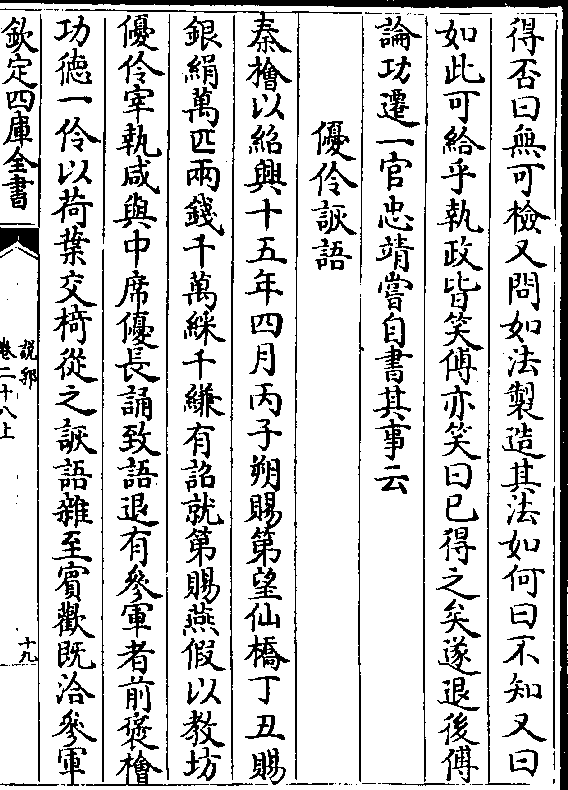 得否曰無可檢又問如法製造其法如何曰不知又曰
如此可給乎執政皆笑傅亦笑曰已得之矣遂退後傅
論功遷一官忠靖嘗自書其事云
優伶詼語
秦檜以紹興十五年四月丙子朔賜第望仙橋丁丑賜
銀絹萬匹兩錢千萬綵千縑有詔就第賜燕假以教坊
優伶宰執咸與中席優長誦致語退有參軍者前褒檜
功德一伶以荷葉交椅從之詼語雜至賓歡既洽參軍
欽定四庫全書
說郛
卷二十八上
十九